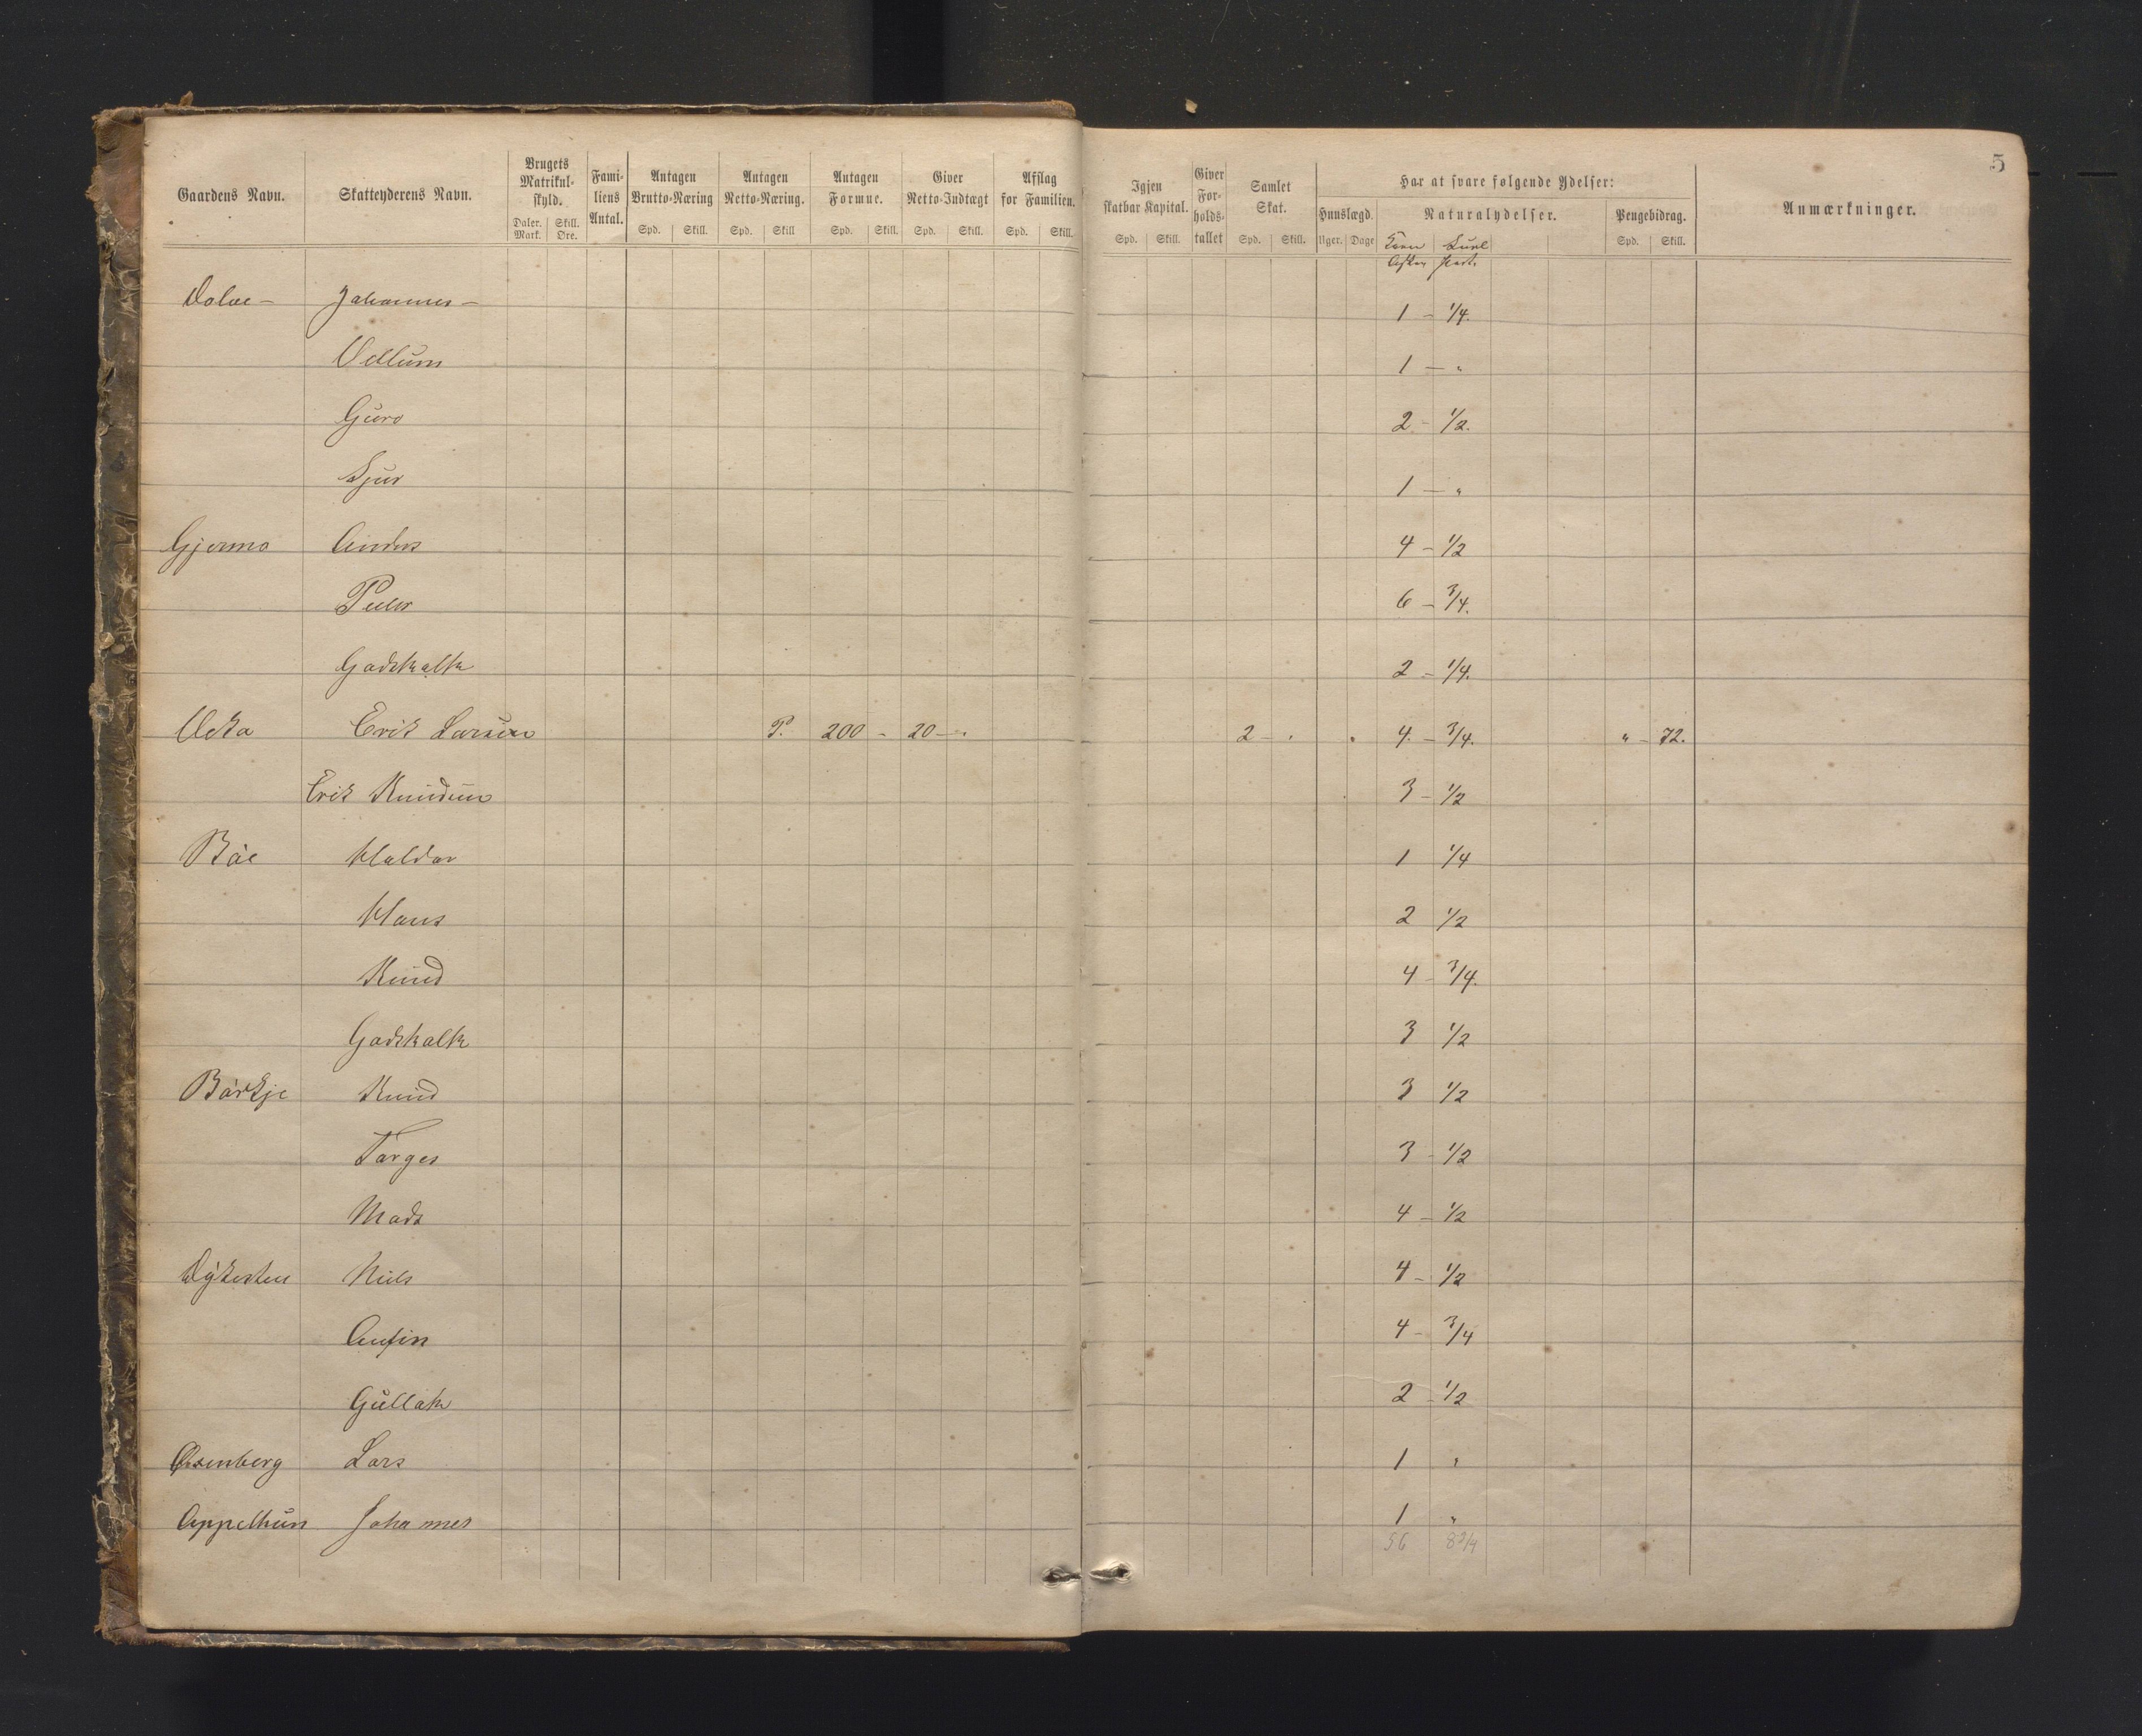 5
Gaardens Navn. Skatteyderens Navn. Brugets Matrikul-skyld. Fami-liens Antal. Antagen Brutto-Næring Antagen Netto-Næring. Antagen Formue. Giver Netto-Indtægt Afslag for Familien. Igjen skatbar Kapital. Giver For-holds-tallet Samlet Skat. Har at svare følgende Ydelser: Anmærkninger.
Hunslægd. Naturalydelser. Pengebidrag.
Daler. Mark. Skill. Øre. Spd. Skill. Spd. Skill Spd. Skill. Spd. Skill. Spd. Skill. Spd. Skill. Spd. Skill. Uger. Dage Korn Spd. Skill.
Dolve – Johannes – 1 – 1/4.
Vellum 1 – "
Guro 2 – 1/2.
Sjur 1 – "
Gjerme Anders 4 – 1/2
Peder 6 – 3/4.
Godskalk 2 – 1/4.
Erik Larsen P. 200 – 20 – " 2 – " " 4. – 3/4. " – 72.
Erik Knudsen 3 – 1/2
Bøe Haldor 1 1/4
Hans 2 1/2
Knud 4 – 3/4.
Godskalk 3 1/2
Børkje Knud 3 1/2
Torges 3 – 1/2
Mads 4 – 1/2
Dykesten Niels 4 – 1/2
Anfin 4 – 3/4
Gullak 2 – 1/2
Lars 1 "
Appelthun Johannes 1 "
56 8 3/4